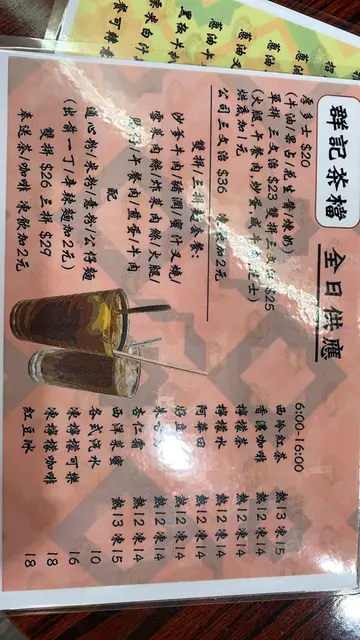 群記茶檔 全日供應
多士 $20
(牛油/果占/花生醬/煉奶)
單拼 三文治 $23 雙拼三文治 $25
(火腿/午餐肉/炒蛋,咸牛肉,芝士)
烘底加1元
公司三文治 $36 凍飲加2元
雙拼/三拼超值餐:
沙爹牛肉/蜜汁叉燒/
雪菜肉絲/炸菜肉絲/火腿/
腸仔/午餐肉/煎蛋/牛肉
配
通心粉/米粉/意粉/公仔麵
(出前一丁/辛辣麵加2元)
雙拼 $26 三拼 $29
奉送茶/咖啡 凍飲加2元
6:00-16:00
西冷紅茶 熱13 凍15
香濃咖啡 熱12 凍14
檸檬茶 熱12 凍14
檸檬水 熱12 凍14
阿華田 熱12 凍14
好立克 熱12 凍14
朱古力 熱12 凍14
杏仁霜 熱12 凍14
西洋菜蜜 熱13 凍15
各式汽水 10
凍檸檬可樂 16
凍檸檬咖啡 18
紅豆冰 18
蔥油
蔥油
蔥油卡